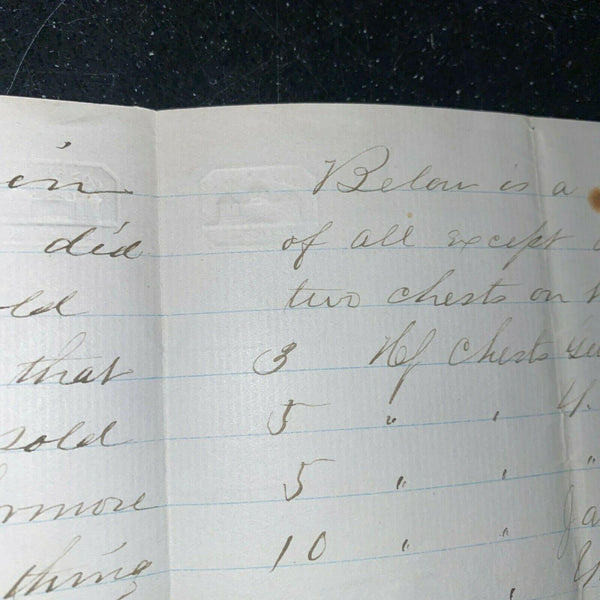 in
did
old
that
sold
rmore
thing
Below is a
of all except
two chests on
3 Hf Chests
5 " "
5 " " "
10 " " Ja